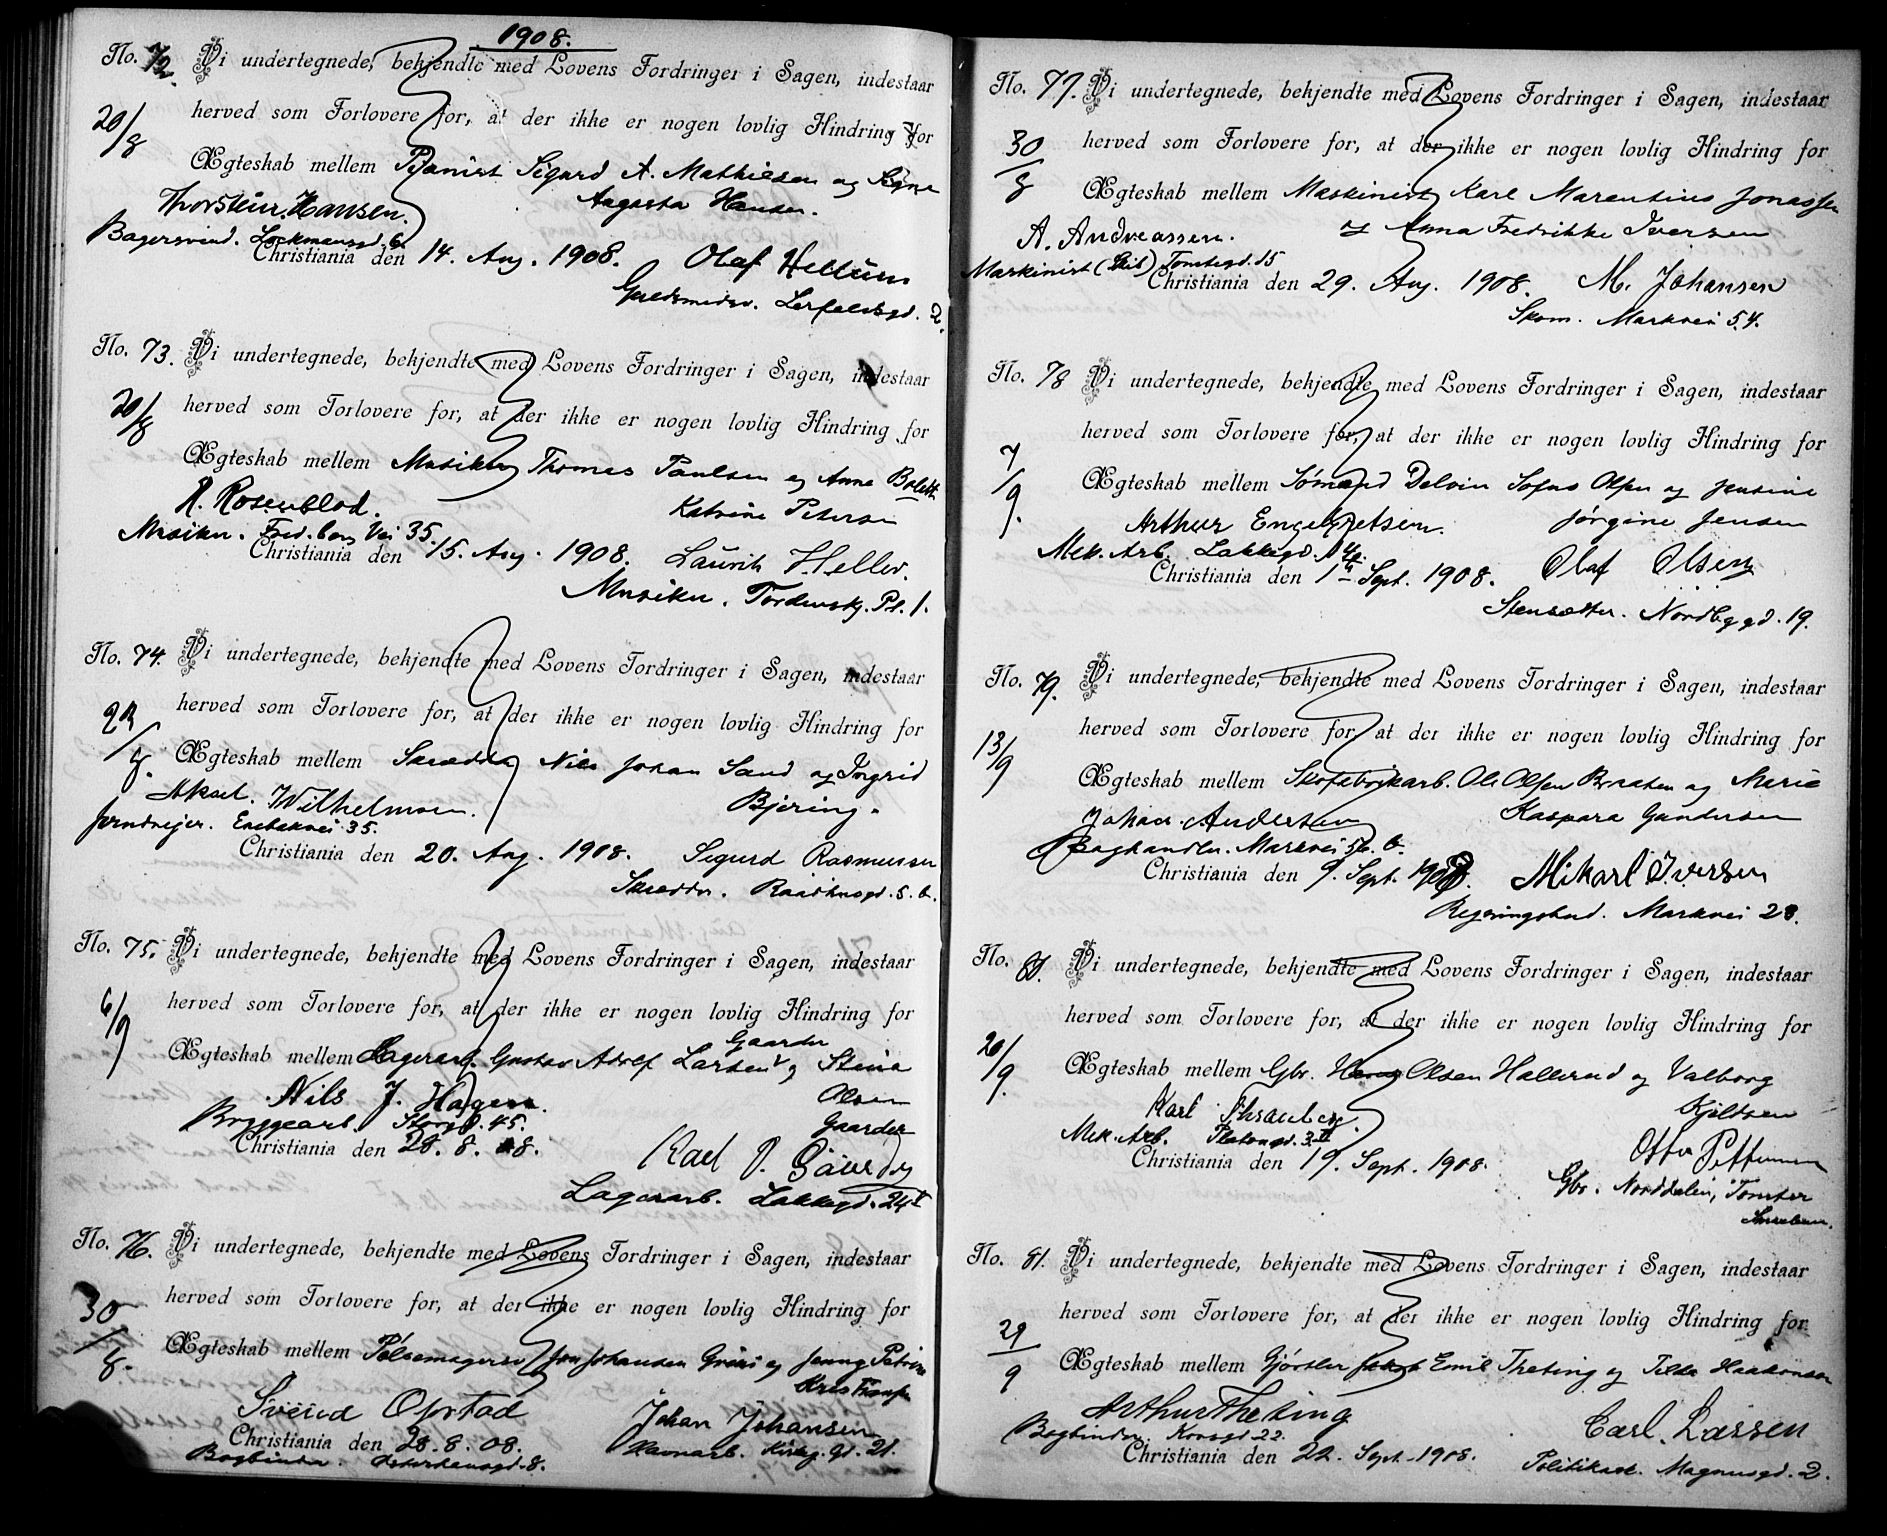 1908.
No. 72. Vi undertegnede, bekjendte med Lovens Fordringer i Sagen, indestaar
20/8 herved som Forlovere for, at der ikke er nogen lovlig Hindring for
Ægteskab mellem Pianist Sigurd A. Mathiesen og Signe
Augusta Hansen.
Thorstein Hansen.
Bagersvend. Lockmansgd. 6.
Christiania den 14. Aug. 1908. Olaf Hellum
Guldsmedsv.
No. 73. Vi undertegnede, bekjendte med Lovens Fordringer i Sagen, indestaar
20/8 herved som Forlovere for, at der ikke er nogen lovlig Hindring for
Ægteskab mellem Musiker Thomas Paulsen og Anna Bolett
Katrine Petersen
R. Rosenblad.
Musiker. Fred.borg Vei 35.
Christiania den 15. Aug. 1908. Laurits Heller.
Musiker. Tordensk. Pl. 1.
No. 74. Vi undertegnede, bekjendte med Lovens Fordringer i Sagen, indestaar
herved som Forlovere for, at der ikke er nogen lovlig Hindring for
Ægteskab mellem Skrædder Nils Johan Sand og Ingrid
Bjering.
Aksel. Wilhelmsen.
Jerndrejer. Enebakvei 35.
Christiania den 20. Aug. 1908. Sigurd Rasmussen
Skrædder. Raadhusgd. 5. b.
No. 75. Vi undertegnede, bekjendte med Lovens Fordringer i Sagen, indestaar
6/9 herved som Forlovere for, at der ikke er nogen lovlig Hindring for
Gaarder
Ægteskab mellem Lagerarb. Gustav Adolf Larsen og Stina
Olsen
Gaarder
Nils J. Hagen.
Bryggearb. Storgd. 45.
Christiania den 28. 8. 08. Karl P. Gaarder
Lagerarb. Lakkegd. 24 V
No. 76. Vi undertegnede, bekjendte med Lovens Fordringer i Sagen, indestaar
30/8. herved som Forlovere for, at der ikke er nogen lovlig Hindring for
Ægteskab mellem Pølsemagersv. Jon Johansen og Jenny Petrine
Kristiansen
Sveind Opstad Johan Johansen
Christiania den 28. 8. 08. Havnarb. Kirkeg. Gd. 21.
Bogbinder.
No. 77. Vi undertegnede, bekjendte med Lovens Fordringer i Sagen, indestaar
30/8 herved som Forlovere for, at der ikke er nogen lovlig Hindring for
Ægteskab mellem Maskinist Karl Marentius Jonassen
og Anna Fredrikke Iversen
A. Andreassen.
Maskinist (Skib) Tomtegd. 15
Christiania den 29. Aug. 1908. M. Johansen
Skom. Markvei 54.
No. 78 Vi undertegnede, bekjendte med Lovens Fordringer i Sagen, indestaar
7/9. herved som Forlovere for, at der ikke er nogen lovlig Hindring for
Ægteskab mellem Sømand Delvin Sofus Olsen og Jensine
Jørgine Jensen
Arthur Engebretsen.
Mek. Arb. Lakkegd.
Christiania den 1ste Sept. 1908. Olaf Olsen
Stensætter. Nordbygd. 19.
No. 79. Vi undertegnede, bekjendte med Lovens Fordringer i Sagen, indestaar
13/9 herved som Forlovere for, at der ikke er nogen lovlig Hindring for
Ægteskab mellem Skofabrikarb. Ole Olsen Braaten og Marie
Kaspara Gundersen
Johan. Andersen
Boghandler. Markvei 56. b.
Christiania den 9. Sept. 1908. Mikarl Iversen
Regjeringsbud. Markvei 28.
No. 80. Vi undertegnede, bekjendte med Lovens Fordringer i Sagen, indestaar
20/9. herved som Forlovere for, at der ikke er nogen lovlig Hindring for
Ægteskab mellem Gbr. Olsen Hallerud og Valborg
Kjeltsen
Karl
Mek. Arb. Platousgd. 3
Christiania den 19. Sept. 1908. Otto Pettersen
Gbr. Norddalen, Tomter
Smaalenene.
No. 81. Vi undertegnede, bekjendte med Lovens Fordringer i Sagen, indestaar
29/9 herved som Forlovere for, at der ikke er nogen lovlig Hindring for
Ægteskab mellem Gjørtler Emil Thesing og Tilda Haakonsen
Arthur Thesing
Bogbinder. Korsgd. 22.
Christiania den 22. Sept. 1908. Carl. Larsen
Politikonst. Magnusgd. 2.